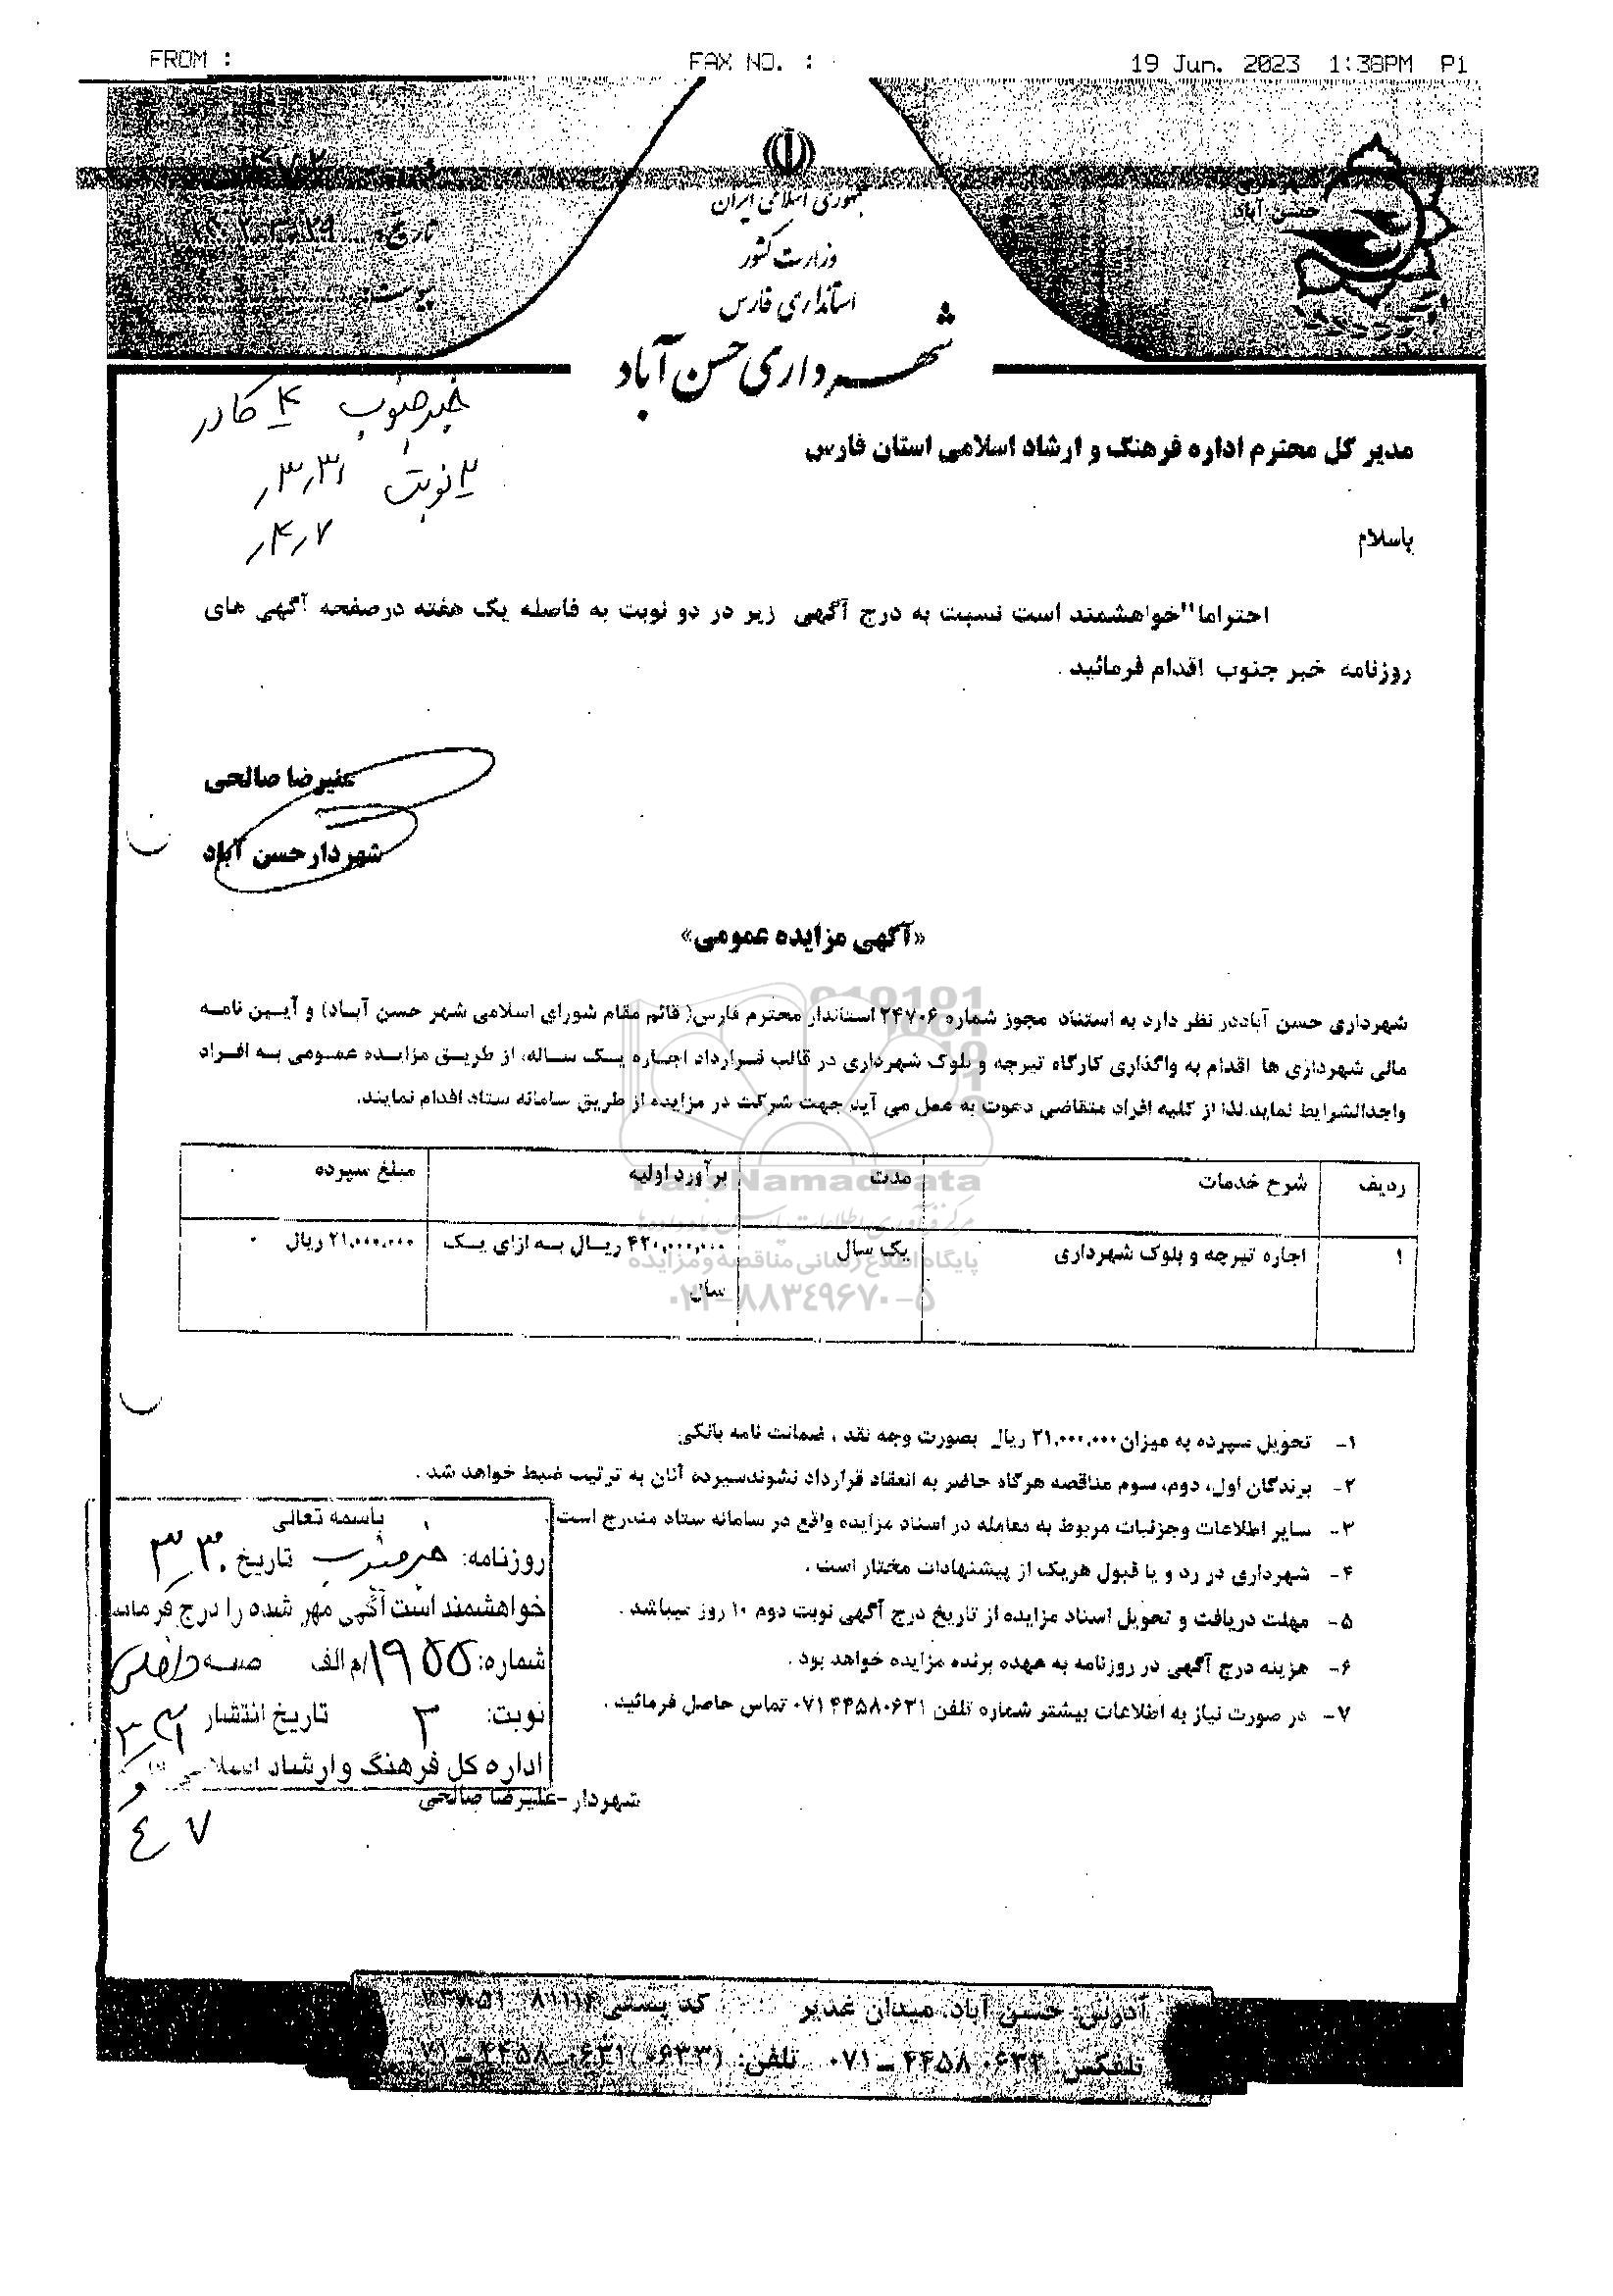 FROM :
FAX NO. :
19 Jun. 2023 1:38PM P1
جمهوری اسلامی ایران
وزارت کشور
استانداری فارس
شهرداری حسن آباد
حسن آباد
تاریخ:
خبر جنوب ۴ کادر
۲ نوبت ۳٫۳۱
۴٫۷
مدیر کل محترم اداره فرهنگ و ارشاد اسلامی استان فارس
باسلام
احتراما"خواهشمند است نسبت به درج آگهی زیر در دو نوبت به فاصله یک هفته درصفحه آگهی های
روزنامه خبر جنوب اقدام فرمائید .
علیرضا صالحی
شهردار حسن آباد
«آگهی مزایده عمومی»
شهرداری حسن آباددر نظر دارد به استناد مجوز شماره ۲۴۷۰۶ استاندار محترم فارس( قائم مقام شورای اسلامی شهر حسن آباد) و آیین نامه
مالی شهرداری ها اقدام به واگذاری کارگاه تیرچه و بلوک شهرداری در قالب قرارداد اجاره یک ساله، از طریق مزایده عمومی به افراد
واجدالشرایط نماید.لذا از کلیه افراد متقاضی دعوت به عمل می آید جهت شرکت در مزایده از طریق سامانه ستاد اقدام نمایند.
ردیف شرح خدمات مدت برآورد اولیه مبلغ سپرده
۱ اجاره تیرچه و بلوک شهرداری یک سال ۴۲۰,۰۰۰,۰۰۰ ریال به ازای یک ۲۱,۰۰۰,۰۰۰ ریال
سال
ParsNamadData
پایگاه اطلاع رسانی مناقصه و مزایده
۰۲۱-۸۸۳۴۹۶۷۰-۵
۱- تحویل سپرده به میزان ۲۱,۰۰۰,۰۰۰ ریال بصورت وجه نقد ، ضمانت نامه بانکی
۲- برندگان اول، دوم، سوم مناقصه هرگاه حاضر به انعقاد قرارداد نشوندسپرده آنان به ترتیب ضبط خواهد شد .
۳- سایر اطلاعات وجزئیات مربوط به معامله در اسناد مزایده واقع در سامانه ستاد مندرج است .
۴- شهرداری در رد و یا قبول هریک از پیشنهادات مختار است .
۵- مهلت دریافت و تحویل اسناد مزایده از تاریخ درج آگهی نوبت دوم ۱۰ روز میباشد .
۶- هزینه درج آگهی در روزنامه به عهده برنده مزایده خواهد بود .
۷- در صورت نیاز به اطلاعات بیشتر شماره تلفن ۰۷۱۴۴۵۸۰۶۳۱ تماس حاصل فرمائید .
باسمه تعالی
روزنامه: خبر جنوب تاریخ ۳٫۳۰
خواهشمند است آگهی مهر شده را درج فرمائید
شماره: ۱۹۵۵/م الف
نوبت: ۲ تاریخ انتشار ۳٫۳۱
اداره کل فرهنگ و ارشاد اسلامی
و
۴٫۷
شهردار-علیرضا صالحی
آدرس: حسن آباد، میدان غدیر کد پستی
تلفکس: ۰۶۳۳ ۴۴۵۸ – ۰۷۱ تلفن: (۰۶۳۳) ۰۶۳۱ ۴۴۵۸ – ۰۷۱